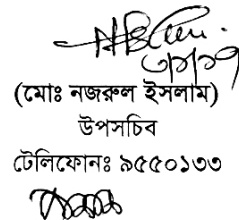 (মোঃ নজরুল ইসলাম)
উপসচিব
টেলিফোনঃ ৯৫৫০১৩৩